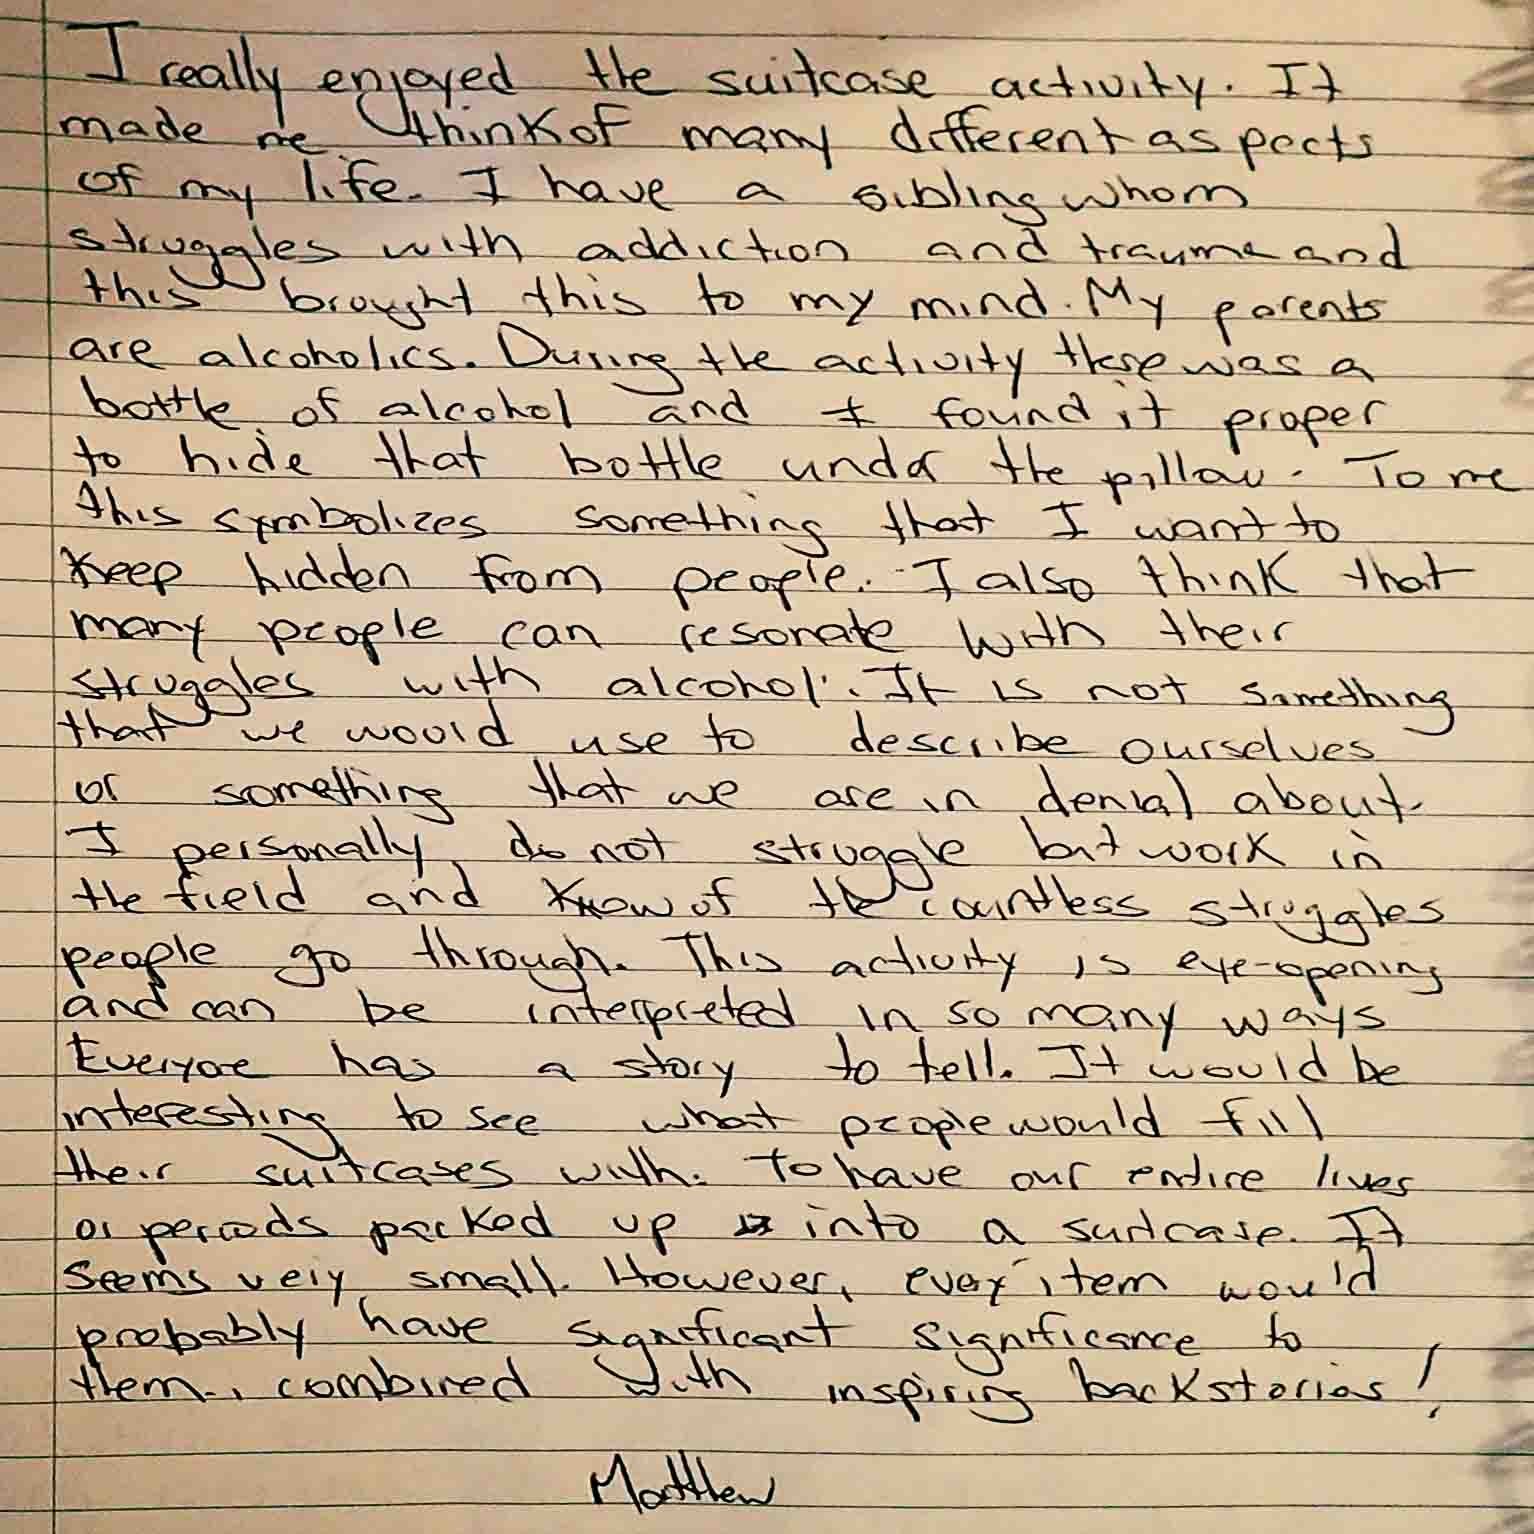 I really enjoyed the suitcase activity. It
made me think of many different aspects
of my life. I have a sibling whom
struggles with addiction and trauma and
this brought this to my mind. My parents
are alcoholics. During the activity there was a
bottle of alcohol and I found it proper
to hide that bottle under the pillow. To me
this symbolizes something that I want to
keep hidden from people. I also think that
many people can resonate with their
struggles with alcohol. It is not something
that we would use to describe ourselves
or something that we are in denial about.
I personally do not struggle but work in
the field and know of the countless struggles
people go through. This activity is eye-opening
and can be interpreted in so many ways
Everyone has a story to tell. It would be
interesting to see what people would fill
their suitcases with. To have our entire lives
or periods packed up into a suitcase. It
seems very small. However, every item would
probably have significant significance to
them, combined with inspiring backstories!
Matthew